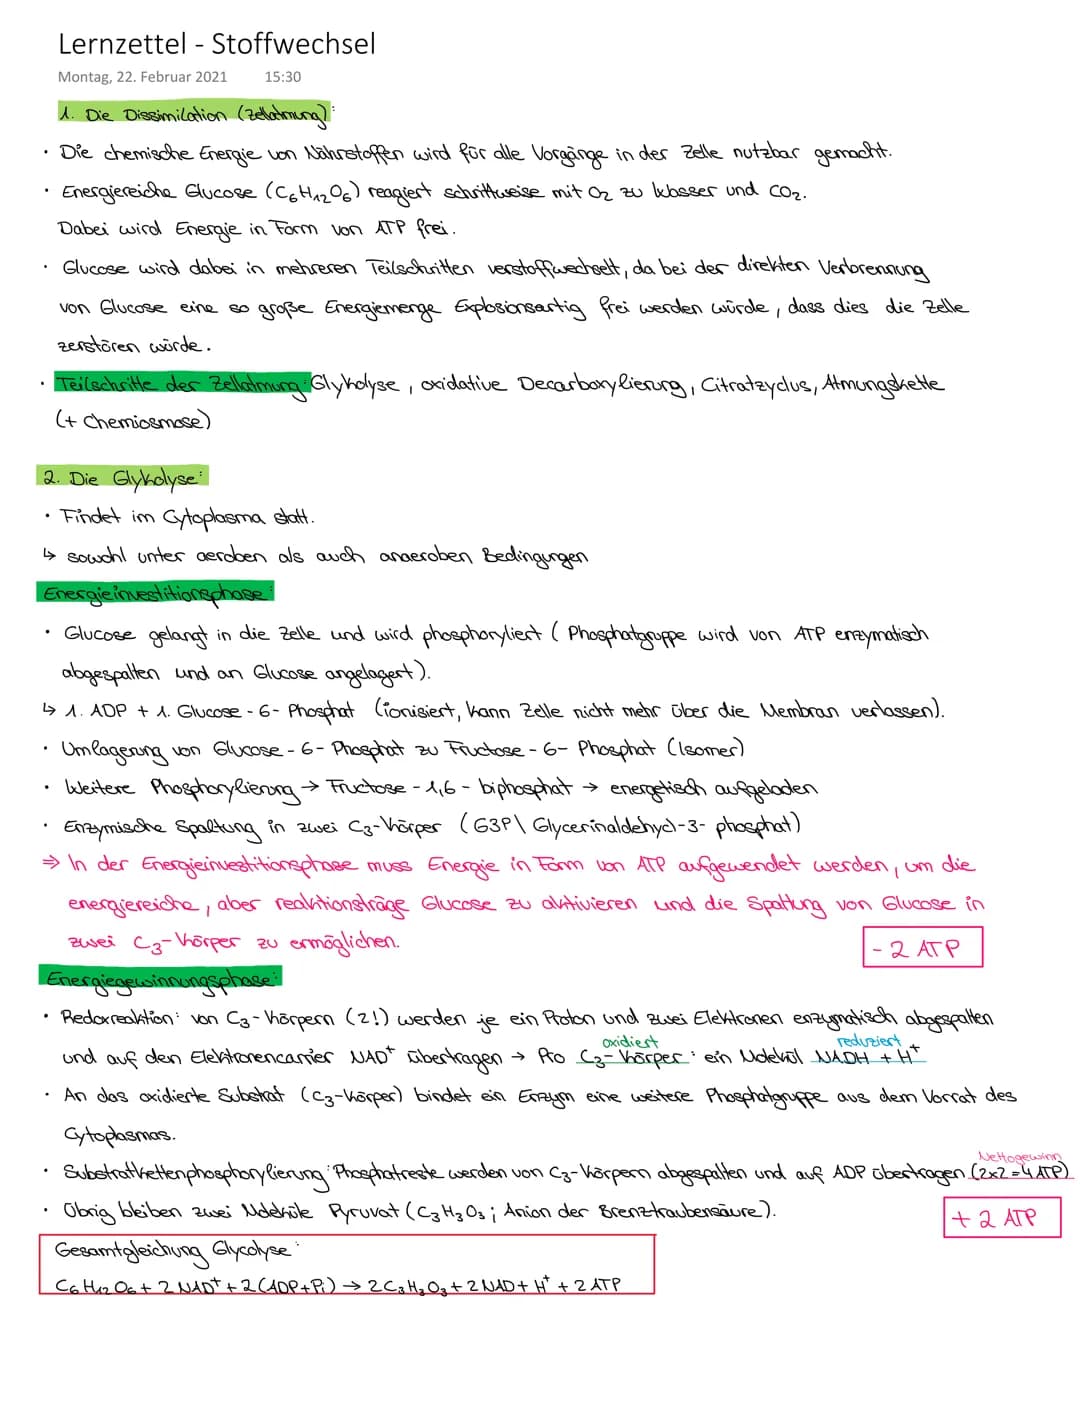 Lernzettel - Stoffwechsel
Montag, 22. Februar 2021 15:30
1. Die Dissimilation (Zellatmung):
• Die chemische Energie von Nährstoffen wird für alle Vorgänge in der Zelle nutzbar gemacht.
• Energiereiche Glucose (C₆H₁₂O₆) reagiert schrittweise mit O₂ zu Wasser und CO₂.
Dabei wird Energie in Form von ATP frei.
• Glucose wird dabei in mehreren Teilschritten verstoffwechselt, da bei der direkten Verbrennung
von Glucose eine so große Energiemenge Explosionsartig frei werden würde, dass dies die Zelle
zerstören würde.
• Teilschritte der Zellatmung: Glykolyse, oxidative Decarboxylierung, Citratzyclus, Atmungskette
(+ Chemiosmose)
2. Die Glykolyse:
• Findet im Cytoplasma statt.
↳ sowohl unter aeroben als auch anaeroben Bedingungen
Energieinvestitionsphase:
• Glucose gelangt in die Zelle und wird phosphoryliert (Phosphatgruppe wird von ATP enzymatisch
abgespalten und an Glucose angelagert).
↳ 1. ADP + 1. Glucose-6-Phosphat (ionisiert, kann Zelle nicht mehr über die Membran verlassen).
• Umlagerung von Glucose-6-Phosphat zu Fructose-6-Phosphat (Isomer)
• Weitere Phosphorylierung → Fructose-1,6-biphosphat → energetisch aufgeladen
• Enzymische Spaltung in zwei C₃-Körper (G3P\ Glycerinaldehyd-3-phosphat)
⇒ In der Energieinvestitionsphase muss Energie in Form von ATP aufgewendet werden, um die
energiereiche, aber reaktionsträge Glucose zu aktivieren und die Spaltung von Glucose in
zwei C₃-Körper zu ermöglichen.
- 2 ATP
Energiegewinnungsphase:
• Redoxreaktion: von C₃-Körpern (2!) werden je ein Proton und zwei Elektronen enzymatisch abgespalten
oxidiert reduziert
und auf den Elektronencarrier NAD⁺ übertragen → Pro C₃-Körper: ein Molekül NADH + H⁺
• An das oxidierte Substrat (C₃-Körper) bindet ein Enzym eine weitere Phosphatgruppe aus dem Vorrat des
Cytoplasmas.
Nettogewinn
• Substratkettenphosphorylierung: Phosphatreste werden von C₃-Körpern abgespalten und auf ADP übertragen (2x2=4 ATP)
• Übrig bleiben zwei Moleküle Pyruvat (C₃H₃O₃; Anion der Brenztraubensäure).
+ 2 ATP
Gesamtgleichung Glycolyse:
C₆H₁₂O₆ + 2 NAD⁺ + 2 (ADP+Pi) → 2 C₃H₃O₃ + 2 NAD + H⁺ + 2 ATP